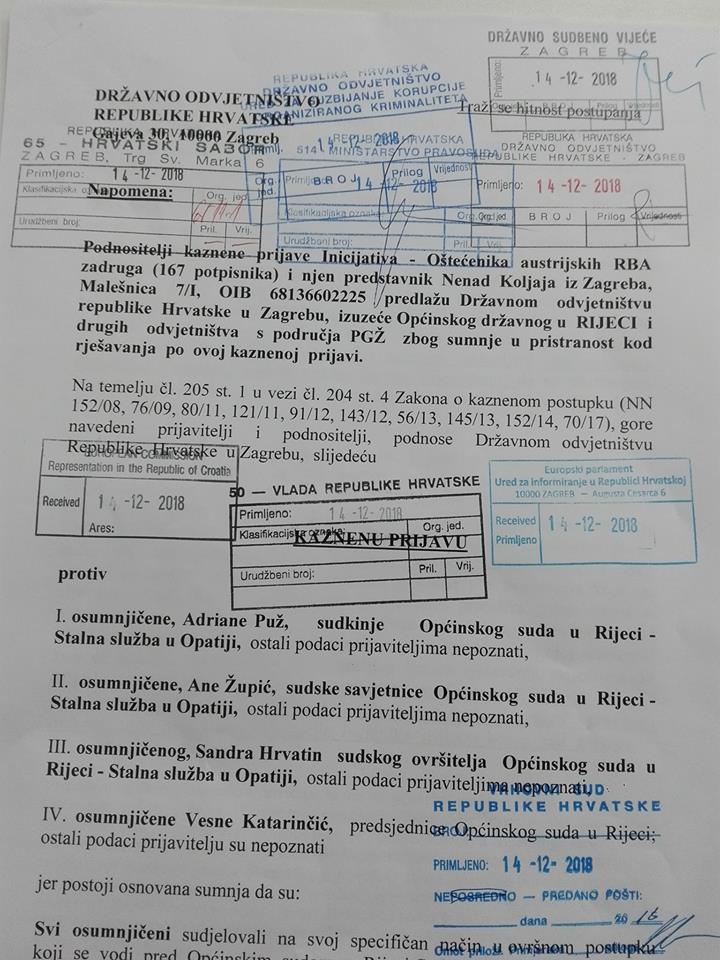 DRŽAVNO SUDBENO VIJEĆE
ZAGREB
Primljeno:
14-12-2018
BROJ Prilog Vrijednosti
REPUBLIKA HRVATSKA
DRŽAVNO ODVJETNIŠTVO
URED ZA SUZBIJANJE KORUPCIJE
ORGANIZIRANOG KRIMINALITETA
Primlj. 14-12-2018
BROJ Prilog Vrijednosti
DRŽAVNO ODVJETNIŠTVO
REPUBLIKE HRVATSKE
Gajeva 30, 10000 Zagreb
Traži se hitnost postupanja
REPUBLIKA HRVATSKA
65 - HRVATSKI SABOR
ZAGREB, Trg Sv. Marka 6
Primljeno: 14-12-2018
Klasifikacijska Org. jed.
Urudžbeni broj: Pril. Vrij.
REPUBLIKA HRVATSKA
514 MINISTARSTVO PRAVOSUĐA
Primljeno: 14-12-2018
Klasifikacijska oznaka: Org. jed.
Urudžbeni broj: Pril. Vrij.
REPUBLIKA HRVATSKA
DRŽAVNO ODVJETNIŠTVO
REPUBLIKE HRVATSKE - ZAGREB
Primljeno: 14-12-2018
Org. jed. BROJ Prilog Vrijednosti
Napomena:
Podnositelji kaznene prijave Inicijativa - Oštećenika austrijskih RBA
zadruga (167 potpisnika) i njen predstavnik Nenad Koljaja iz Zagreba,
Malešnica 7/I, OIB 68136602225 predlažu Državnom odvjetništvu
republike Hrvatske u Zagrebu, izuzeće Općinskog državnog u RIJECI i
drugih odvjetništva s područja PGŽ zbog sumnje u pristranost kod
rješavanja po ovoj kaznenoj prijavi.
Na temelju čl. 205 st. 1 u vezi čl. 204 st. 4 Zakona o kaznenom postupku (NN
152/08, 76/09, 80/11, 121/11, 91/12, 143/12, 56/13, 145/13, 152/14, 70/17), gore
navedeni prijavitelji i podnositelji, podnose Državnom odvjetništvu
Republike Hrvatske u Zagrebu, slijedeću
EUROPEAN COMMISSION
Representation in the Republic of Croatia
Received 14-12-2018
Ares:
50 — VLADA REPUBLIKE HRVATSKE
Primljeno: 14-12-2018
Klasifikacijska oznaka: Org. jed.
Urudžbeni broj: Pril. Vrij.
Europski parlament
Ured za informiranje u Republici Hrvatskoj
10000 ZAGREB — Augusta Cesarca 6
Received
Primljeno 14-12-2018
KAZNENU PRIJAVU
protiv
I. osumnjičene, Adriane Puž, sudkinje Općinskog suda u Rijeci -
Stalna služba u Opatiji, ostali podaci prijaviteljima nepoznati,
II. osumnjičene, Ane Župić, sudske savjetnice Općinskog suda u Rijeci -
Stalna služba u Opatiji, ostali podaci prijaviteljima nepoznati,
III. osumnjičenog, Sandra Hrvatin sudskog ovršitelja Općinskog suda u
Rijeci - Stalna služba u Opatiji, ostali podaci prijaviteljima nepoznati,
IV. osumnjičene Vesne Katarinčić, predsjednice Općinskog suda u Rijeci;
ostali podaci prijavitelju su nepoznati
VRHOVNI SUD
REPUBLIKE HRVATSKE
BROJ
PRIMLJENO: 14-12-2018
NEPOSREDNO — PREDANO POŠTI:
dana 2018
jer postoji osnovana sumnja da su:
Svi osumnjičeni sudjelovali na svoj specifičan način u ovršnom postupku
koji se vodi pred Općinskim